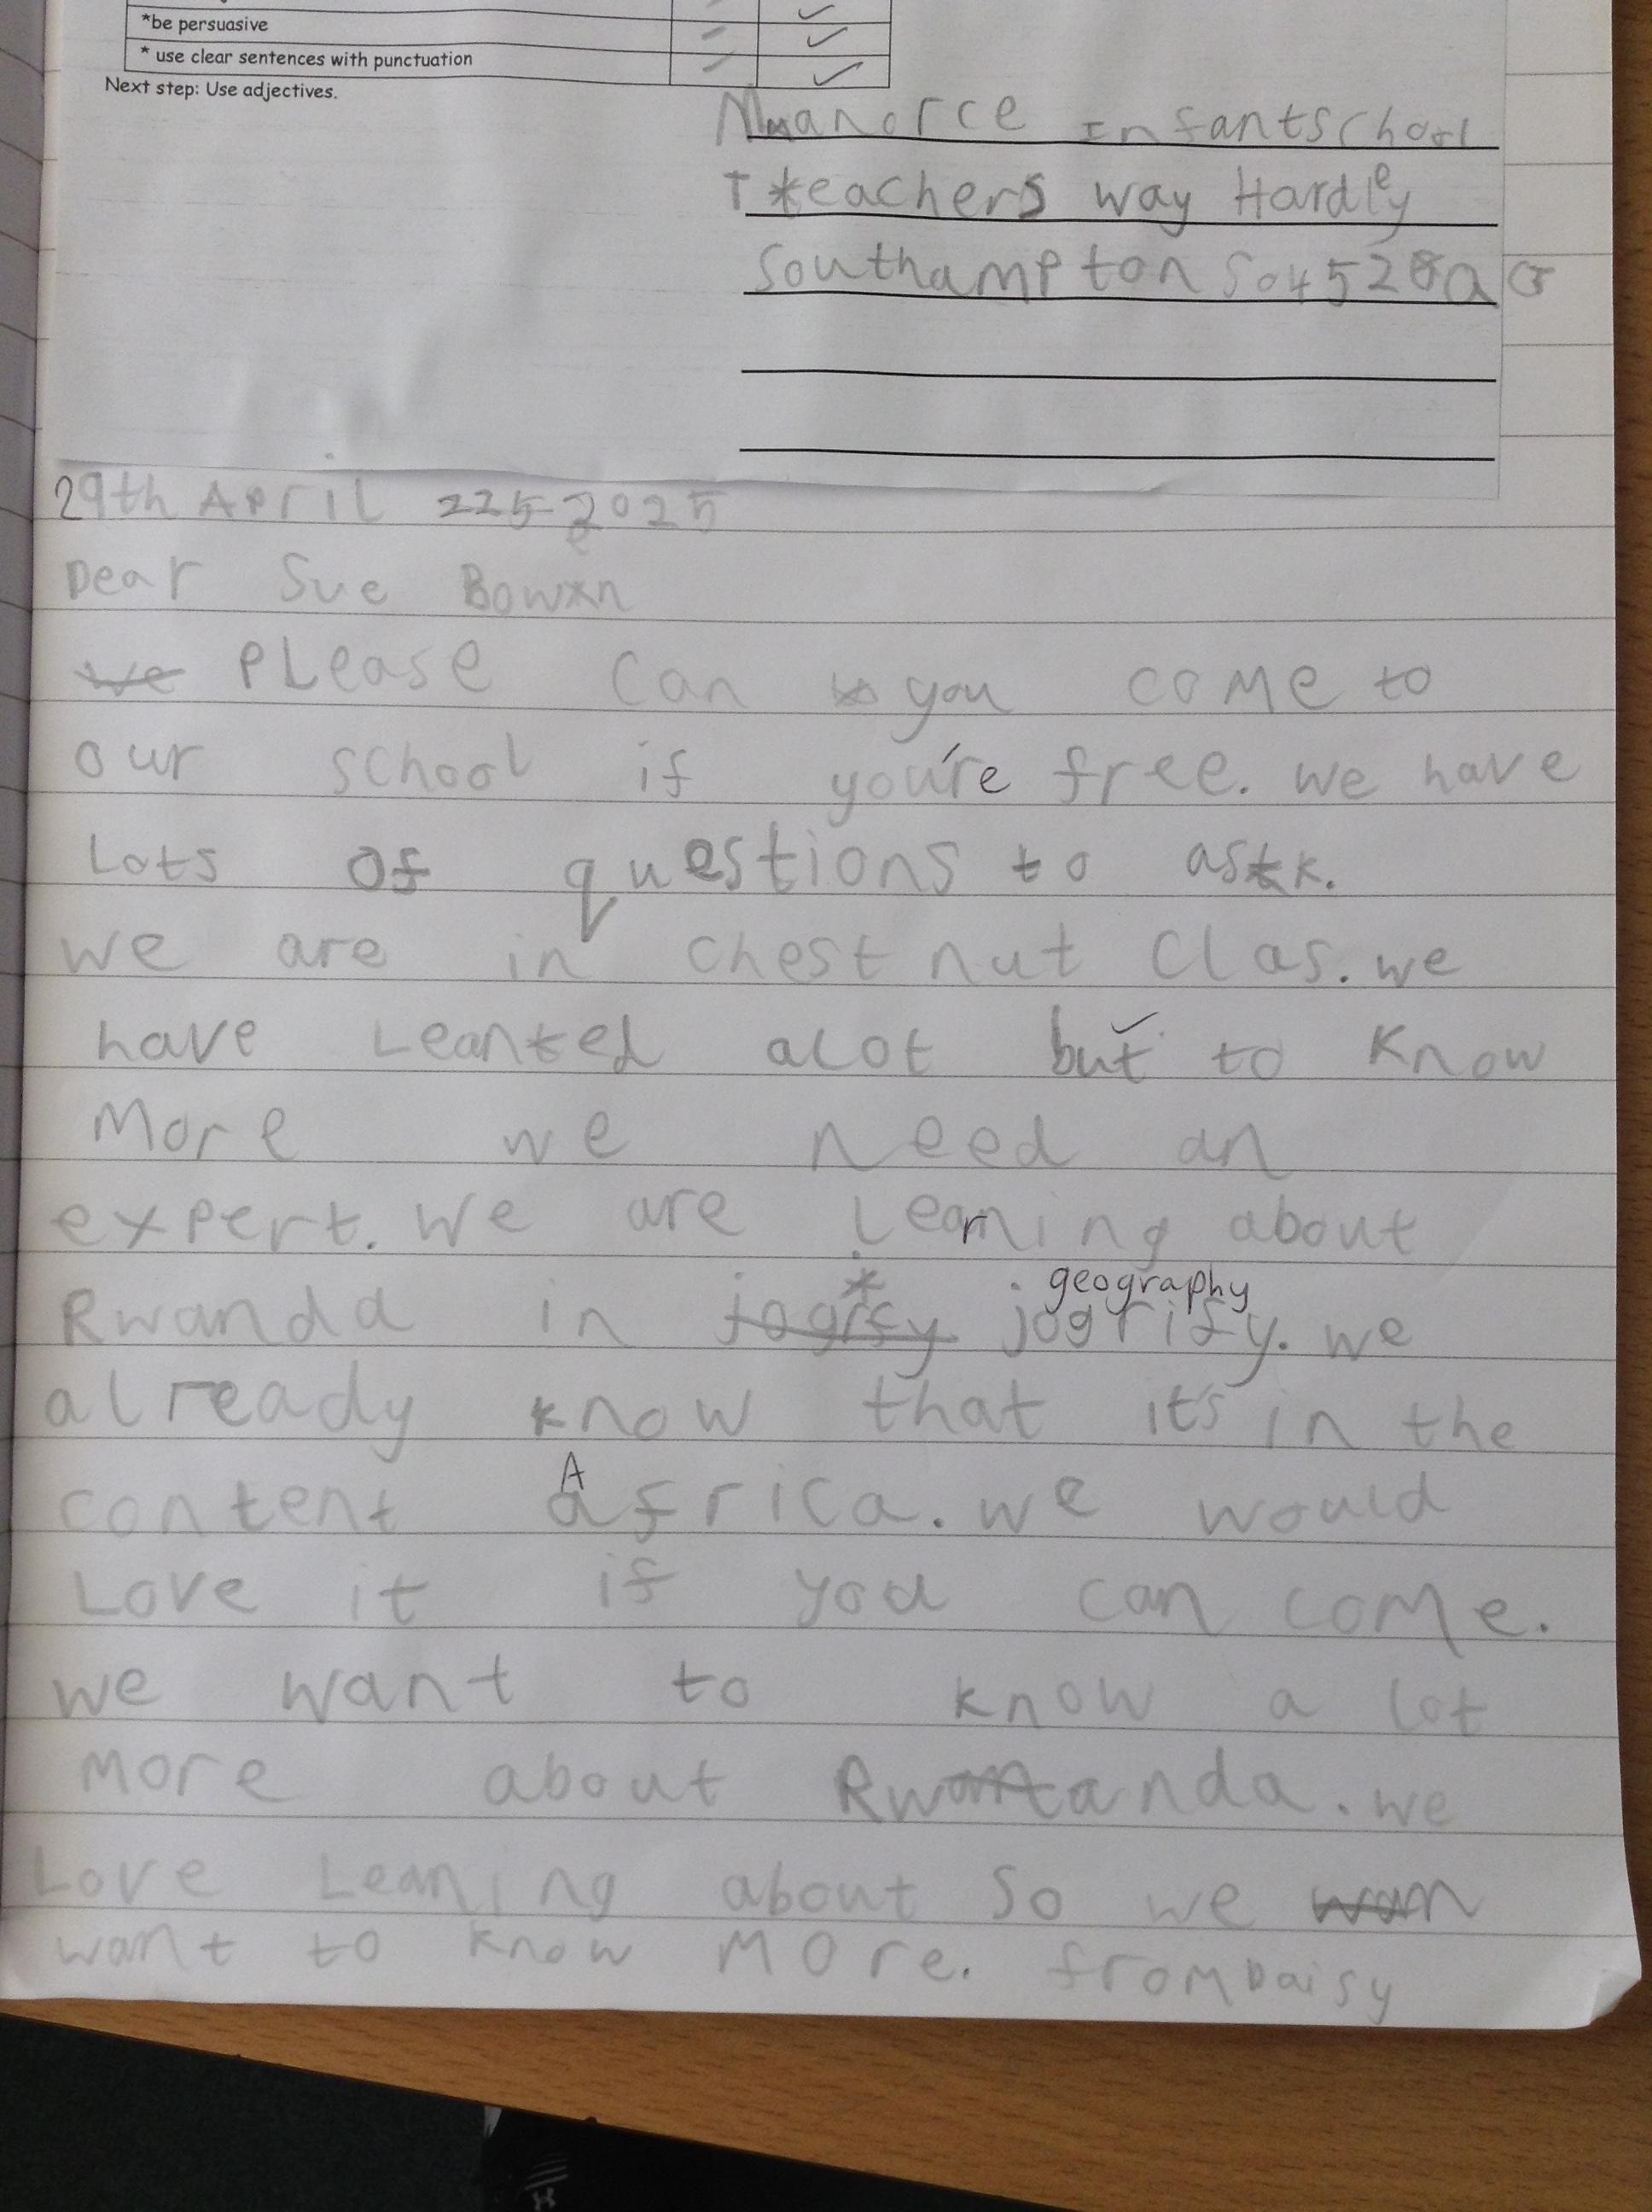 *be persuasive
* use clear sentences with punctuation
Next step: Use adjectives.
Infantschool
Teachers way Hardley
Southampton
29th April 225 2025
Dear Sue Bowen
we PLease can you come to
our school if you're free. we have
Lots of questions to ask.
we are in chestnut Clas. we
have Leanted alot but to know
More we need an
expert. We are Learning about
geography
Rwanda in jogrify. we
already know that it's in the
content Africa. we would
Love it if you can come.
we want to know a lot
more about Rwanda. we
Love Leaning about so we wan
want to know More. from Daisy